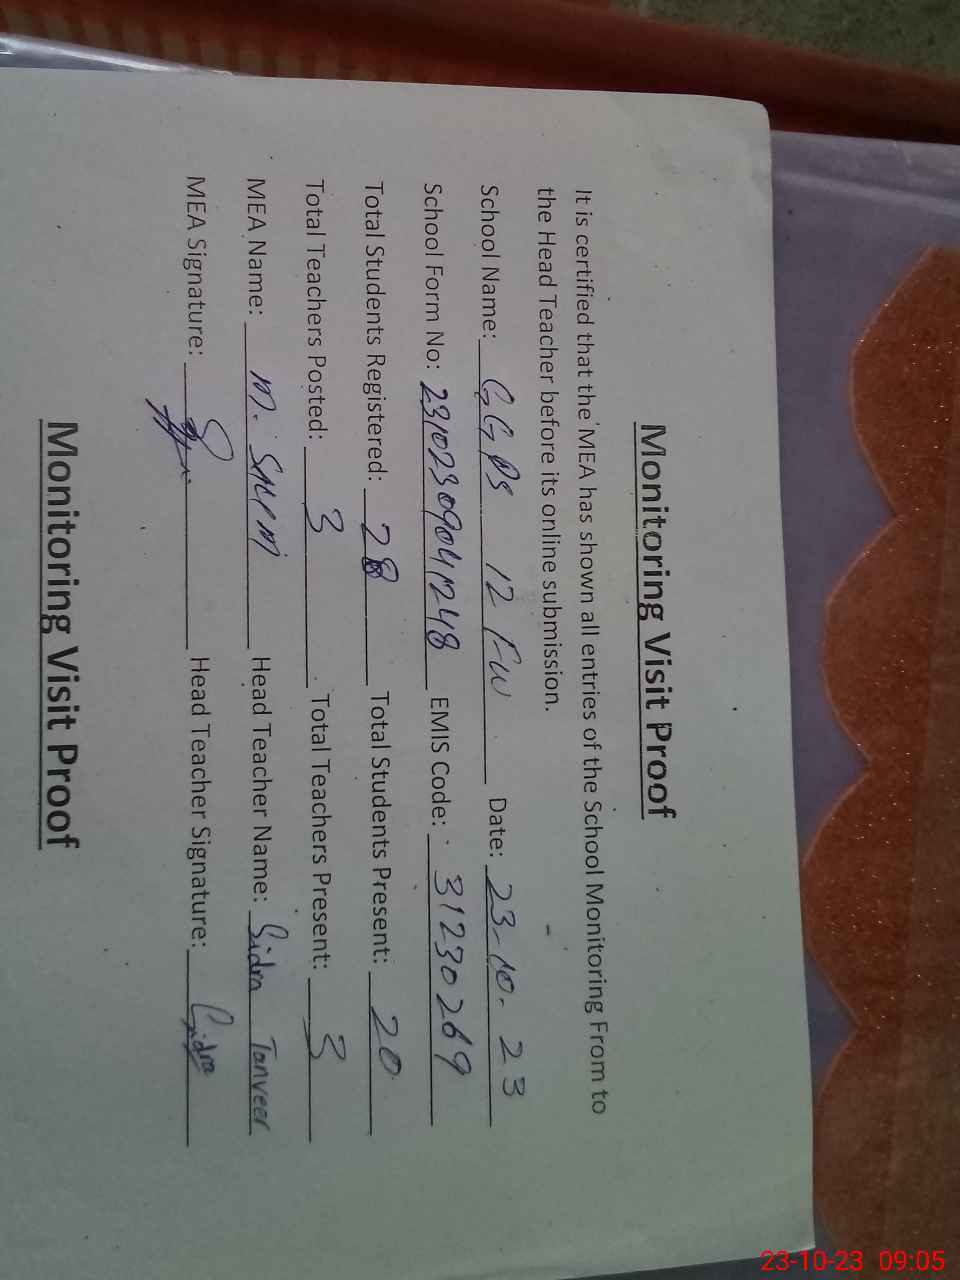 Monitoring Visit Proof
It is certified that the MEA has shown all entries of the School Monitoring From to
the Head Teacher before its online submission.
School Name: GGPS 12 FW Date: 23-10-23
School Form No: EMIS Code: 31230269
Total Students Registered: 28 Total Students Present: 20
Total Teachers Posted: 3 Total Teachers Present: 3
MEA Name: M. Head Teacher Name: Sidra Tanveer
MEA Signature: Head Teacher Signature: Sidra
Monitoring Visit Proof
23-10-23 09:05